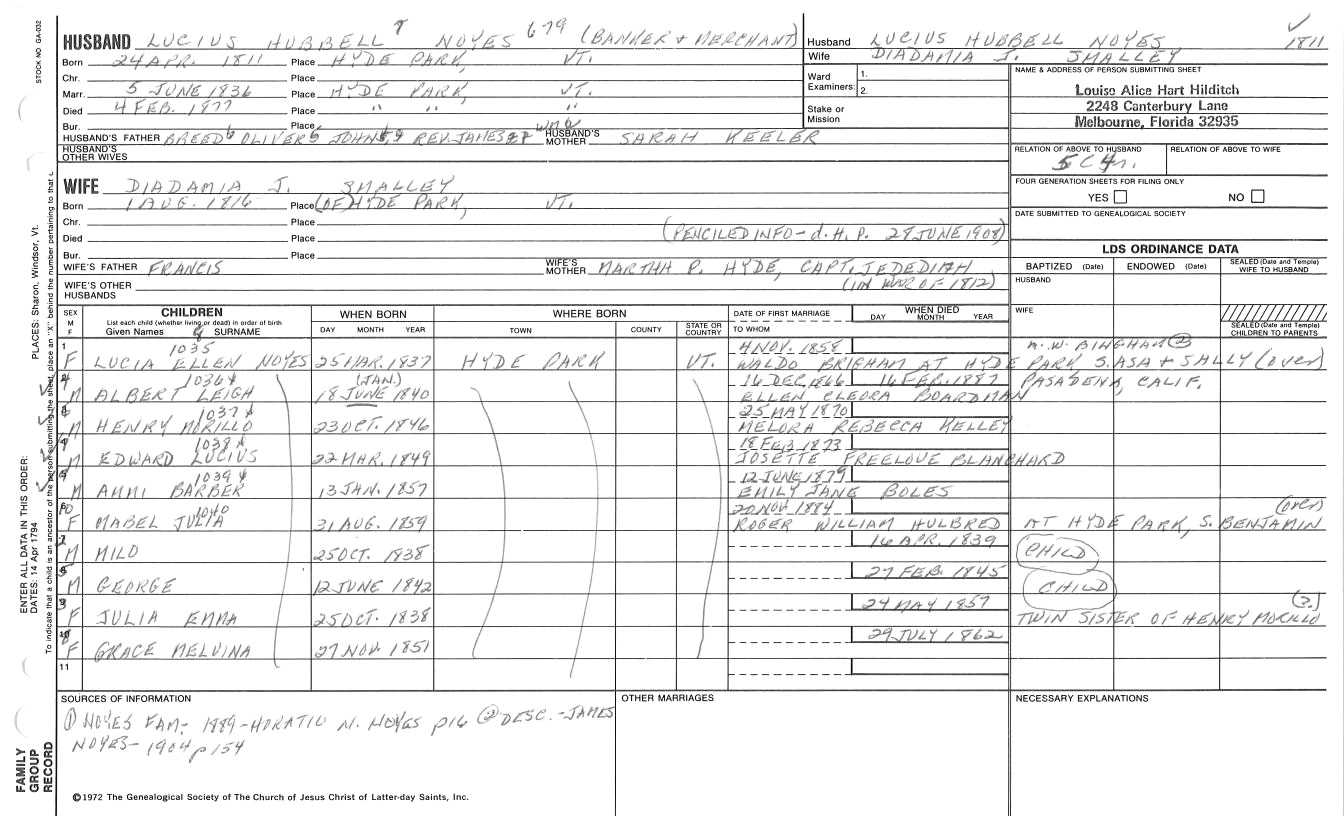 STOCK NO. GA-032
PLACES: Sharon, Windsor, Vt.
ENTER ALL DATA IN THIS ORDER:
DATES: 14 Apr 1794
To indicate that a child is an ancestor of the person submitting the sheet, place an "X" behind the number pertaining to that
FAMILY GROUP RECORD
HUSBAND LUCIUS HUBBELL 8 NOYES 679 (BANKER + MERCHANT)
Born 24 APR. 1811 Place HYDE PARK, VT.
Chr. Place
Marr. 5 JUNE 1836 Place HYDE PARK, VT.
Died 4 FEB. 1877 Place " " "
Bur. Place
HUSBAND'S FATHER BREED 6 OLIVER 5 JOHN REV. JAMES HUSBAND'S MOTHER SARAH KEELER
HUSBAND'S OTHER WIVES
WIFE DIADAMIA J. SMALLEY
Born 1 AUG. 1816 Place (OF) HYDE PARK, VT.
Chr. Place
Died Place (PENCILED INFO - d. H. P. 27 JUNE 1908)
Bur. Place
WIFE'S FATHER FRANCIS WIFE'S MOTHER MARTHA P. HYDE, CAPT. JEDEDIAH
WIFE'S OTHER HUSBANDS (IN WAR OF 1812)
Husband LUCIUS HUBBELL NOYES 1811
Wife DIADAMIA J. SMALLEY
Ward Examiners: 1.
2.
Stake or Mission
NAME & ADDRESS OF PERSON SUBMITTING SHEET
Louise Alice Hart Hilditch
2248 Canterbury Lane
Melbourne, Florida 32935
RELATION OF ABOVE TO HUSBAND RELATION OF ABOVE TO WIFE
5 C 4 r.
FOUR GENERATION SHEETS FOR FILING ONLY
YES NO
DATE SUBMITTED TO GENEALOGICAL SOCIETY
LDS ORDINANCE DATA
BAPTIZED (Date) ENDOWED (Date) SEALED (Date and Temple) WIFE TO HUSBAND
HUSBAND
WIFE
SEALED (Date and Temple) CHILDREN TO PARENTS
SEX M F CHILDREN WHEN BORN WHERE BORN DATE OF FIRST MARRIAGE WHEN DIED
List each child (whether living or dead) in order of birth
Given Names SURNAME DAY MONTH YEAR TOWN COUNTY STATE OR COUNTRY TO WHOM DAY MONTH YEAR
1 1035 4 NOV. 1858 N. W. BINGHAM (2)
F LUCIA ELLEN NOYES 25 MAR. 1837 HYDE PARK VT. WALDO BRIGHAM AT HYDE PARK S. ASA + SALLY (over)
1036 (JAN.) 16 DEC. 1866 16 FEB. 1887 PASADENA, CALIF.
M ALBERT LEIGH 18 JUNE 1840 ELLEN CLEORA BOARDMAN
1037 25 MAY 1870
M HENRY MORILLO 23 OCT. 1846 MELORA REBECCA KELLEY
1038 18 FEB 1873
M EDWARD LUCIUS 22 MAR. 1849 JOSETTE FREELOVE BLANCHARD
1039 12 JUNE 1879
M AMMI BARBER 13 JAN. 1857 EMILY JANE BOLES
10 1040 20 NOV. 1884 (over)
F MABEL JULIA 31 AUG. 1859 ROGER WILLIAM HULBRED AT HYDE PARK, S. BENJAMIN
16 APR. 1839
M MILO 25 OCT. 1838 CHILD
27 FEB. 1845
M GEORGE 12 JUNE 1842 CHILD
24 MAY 1857 (?)
F JULIA EMMA 25 OCT. 1838 TWIN SISTER OF HENRY MORILLO
29 JULY 1862
F GRACE MELVINA 27 NOV. 1851
11
SOURCES OF INFORMATION OTHER MARRIAGES NECESSARY EXPLANATIONS
① NOYES FAM- 1889-HORATIO N. NOYES p16 ② DESC.-JAMES
NOYES- 1904 p 154
©1972 The Genealogical Society of The Church of Jesus Christ of Latter-day Saints, Inc.